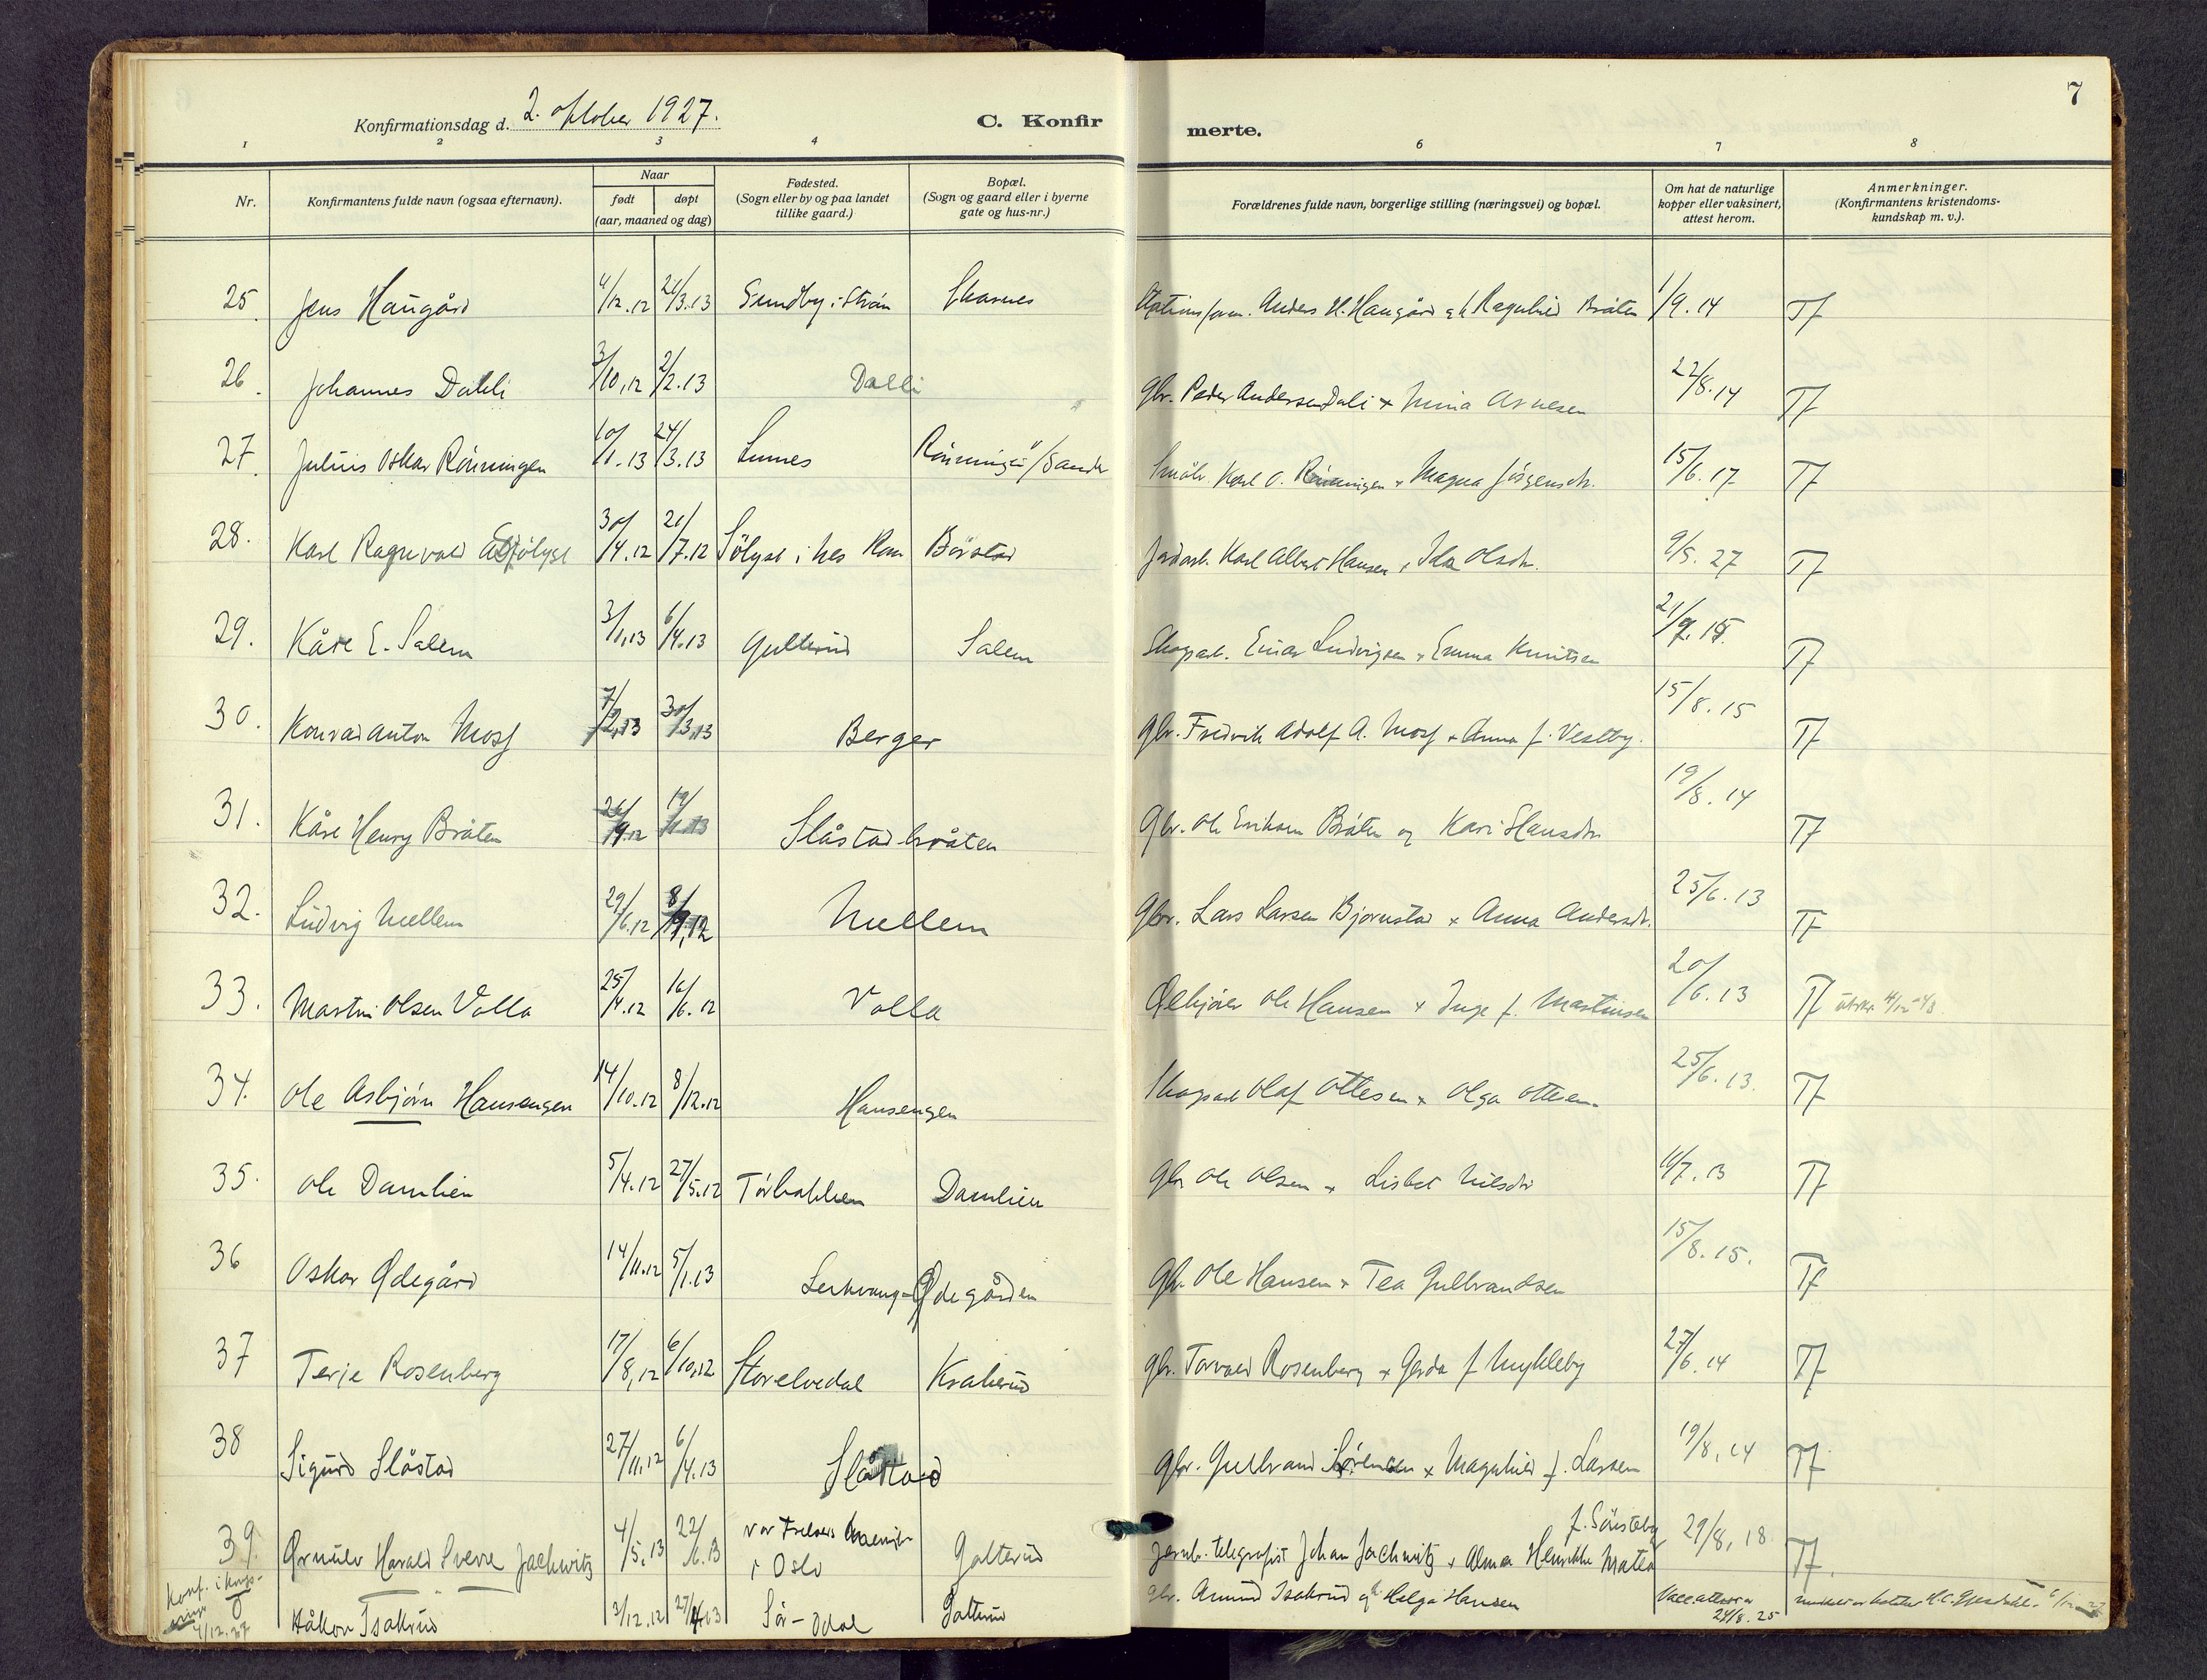 7
Konfirmationsdag d. 2. oktober 1927.
C. Konfir
merte.
1 2 3 4 6 7 8
Nr.
Konfirmantens fulde navn (ogsaa efternavn).
Naar
født døpt
(aar, maaned og dag)
Fødested.
(Sogn eller by og paa landet
tillike gaard.)
Bopæl.
(Sogn og gaard eller i byerne
gate og hus-nr.)
Forældrenes fulde navn, borgerlige stilling (næringsvei) og bopæl.
Om hat de naturlige
kopper eller vaksinert,
attest herom.
Anmerkninger.
(Konfirmantens kristendoms-
kundskap m. v.).
25. Jens Haugård 4/12.12 /3.13 Sundby i Skarnes Anders H. Haugård Ragnhild Bråten 1/9.14 Tf
26. Johannes Dahli 3/10.12 2/2.13 Dalli Gbr. Peder Andersen Dali + Mina Arnesen 22/8.14 Tf
27. Julius Oskar Rönningen 10/1.13 24/3.13 Lunes /Sander Karl O. Rönningen + Magna Jörgensdtr. 15/6.17 Tf
28. Karl Ragnvald 30/4.12 21/7.12 Sölyst i Nes Rom Börstad Jordarb. Karl Albert Hansen + Ida Olsdtr. 9/9.27 Tf
29. Kåre E. Salem 3/1.13 6/4.13 Gullerud Salem Skogsarb. Einar Ludvigsen + Emma Knutsen Tf
30. Konrad Anton Mosf 7/2.13 30/3.13 Berger Gbr. Fredrik Adolf A. Mosf + Anna f. Vestby. 15/8.15 Tf
31. Kåre Henry Bråten 26/9.12 Slåstadbråten Gbr. Ole Eriksen Bråten og Kari Hansdtr 19/8.14 Tf
32. Ludvig Mellem 29/6.12 8/9.12 Mellem Gbr. Lars Larsen Bjørnstad + Anna Andersdtr. 25/6.13 Tf
33. Martin Olsen Volla 25/4.12 16/6.12 Volla Ole Hansen + Inge f. Martinsen 20/6.13 Tf
34. Ole Asbjörn Hansengen 14/10.12 8/12.12 Hansengen Skogsarb Olaf Ottesen + Olga Ottesen. 25/6.13. Tf
35. Ole Damlien 5/4.12 27/5.12 Törbakken Damlien Gbr Ole Olsen + Lisbet Nilsdtr /7.13 Tf
36 Oskar Ødegård 14/11.12 5/1.13 Lerkvang-Ødegården Gbr. Ole Hansen + Tea Gulbrandsen 15/8.15. Tf
37 Terje Rosenberg 17/8.12 6/10.12 Storelvedal Krakerud Gbr. Torvald Rosenberg + Gerda f Mykleby 27/6.14 Tf
38 Sigurd Slåstad 27/11.12 6/4.13 Slåstad Gbr. Gulbrand Sörensen + Magnhild f. Larsen 19/8.14 Tf
39. Ørnulv Harald Sverre Jachwitz 4/5.13 22/6.13 Vor Frelsers menighet i Oslo Galterud Jernb. telegrafist Johan Jachwitz + Alma Henrikke Matea f. Sörsteby 29/8.18 Tf.
Konf. i Kongs-
vinger
4/12.27
Håkon Isakrud 3/12.12 27/4.13 Sör-Odal Galterud gbr. Amund Isakrud og Helga Hansen Vacc.attest av 24/8.25